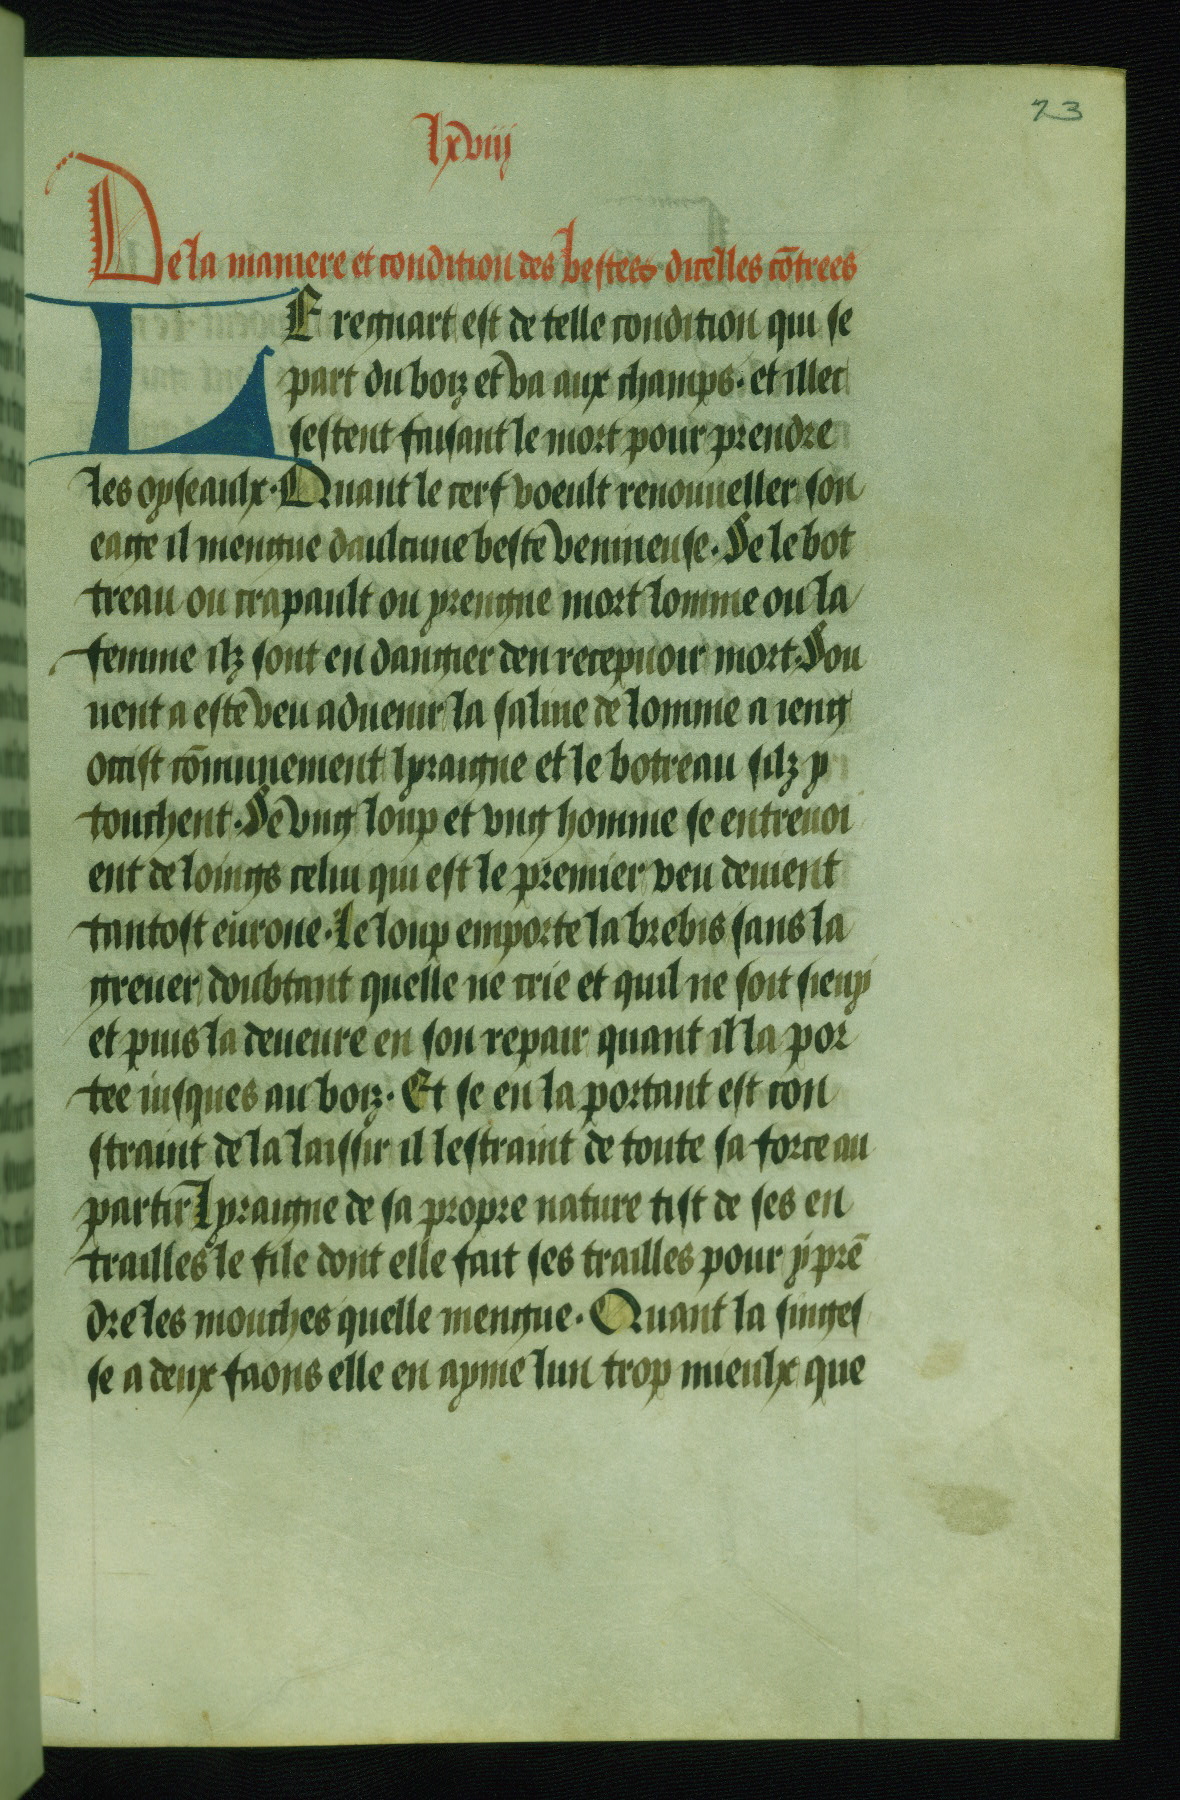 73
lxviij
De la maniere et condition des bestees dicelles cōtrees
LE regnart est de telle condition qui se
part du boiz et va aux champs · et illec
sestent faisant le mort pour prendre
les oyseaulx · Quant le cerf voeult renouueller son
eage il mengue daulcune beste venimeuse · Se le bot
treau ou crapault ou yrengne mort lomme ou la
femme ilz sont en dangier den recepuoir mort Sou
uent a este veu aduenir la saliue de lomme a ieug
occist cōmunement lyraigne et le botreau silz y
touchent · Se vng loup et vng homme se entreuoi
ent de loings celui qui est le premier veu deuient
tantost euroue · Le loup emporte la brebis sans la
greuer doubtant quelle ne crie et quil ne soit sieuy
et puis la deueure en son repair quant il la por
tee iusques au boiz · Et se en la portant est con
straint de la laissir il lestraint de toute sa force au
partir Lyraigne de sa propre nature tist de ses en
trailles le file dont elle fait ses trailles pour y prē
dre les mouches quelle mengue · Quant la singes
se a deux faons elle en ayme lun trop mieulx que